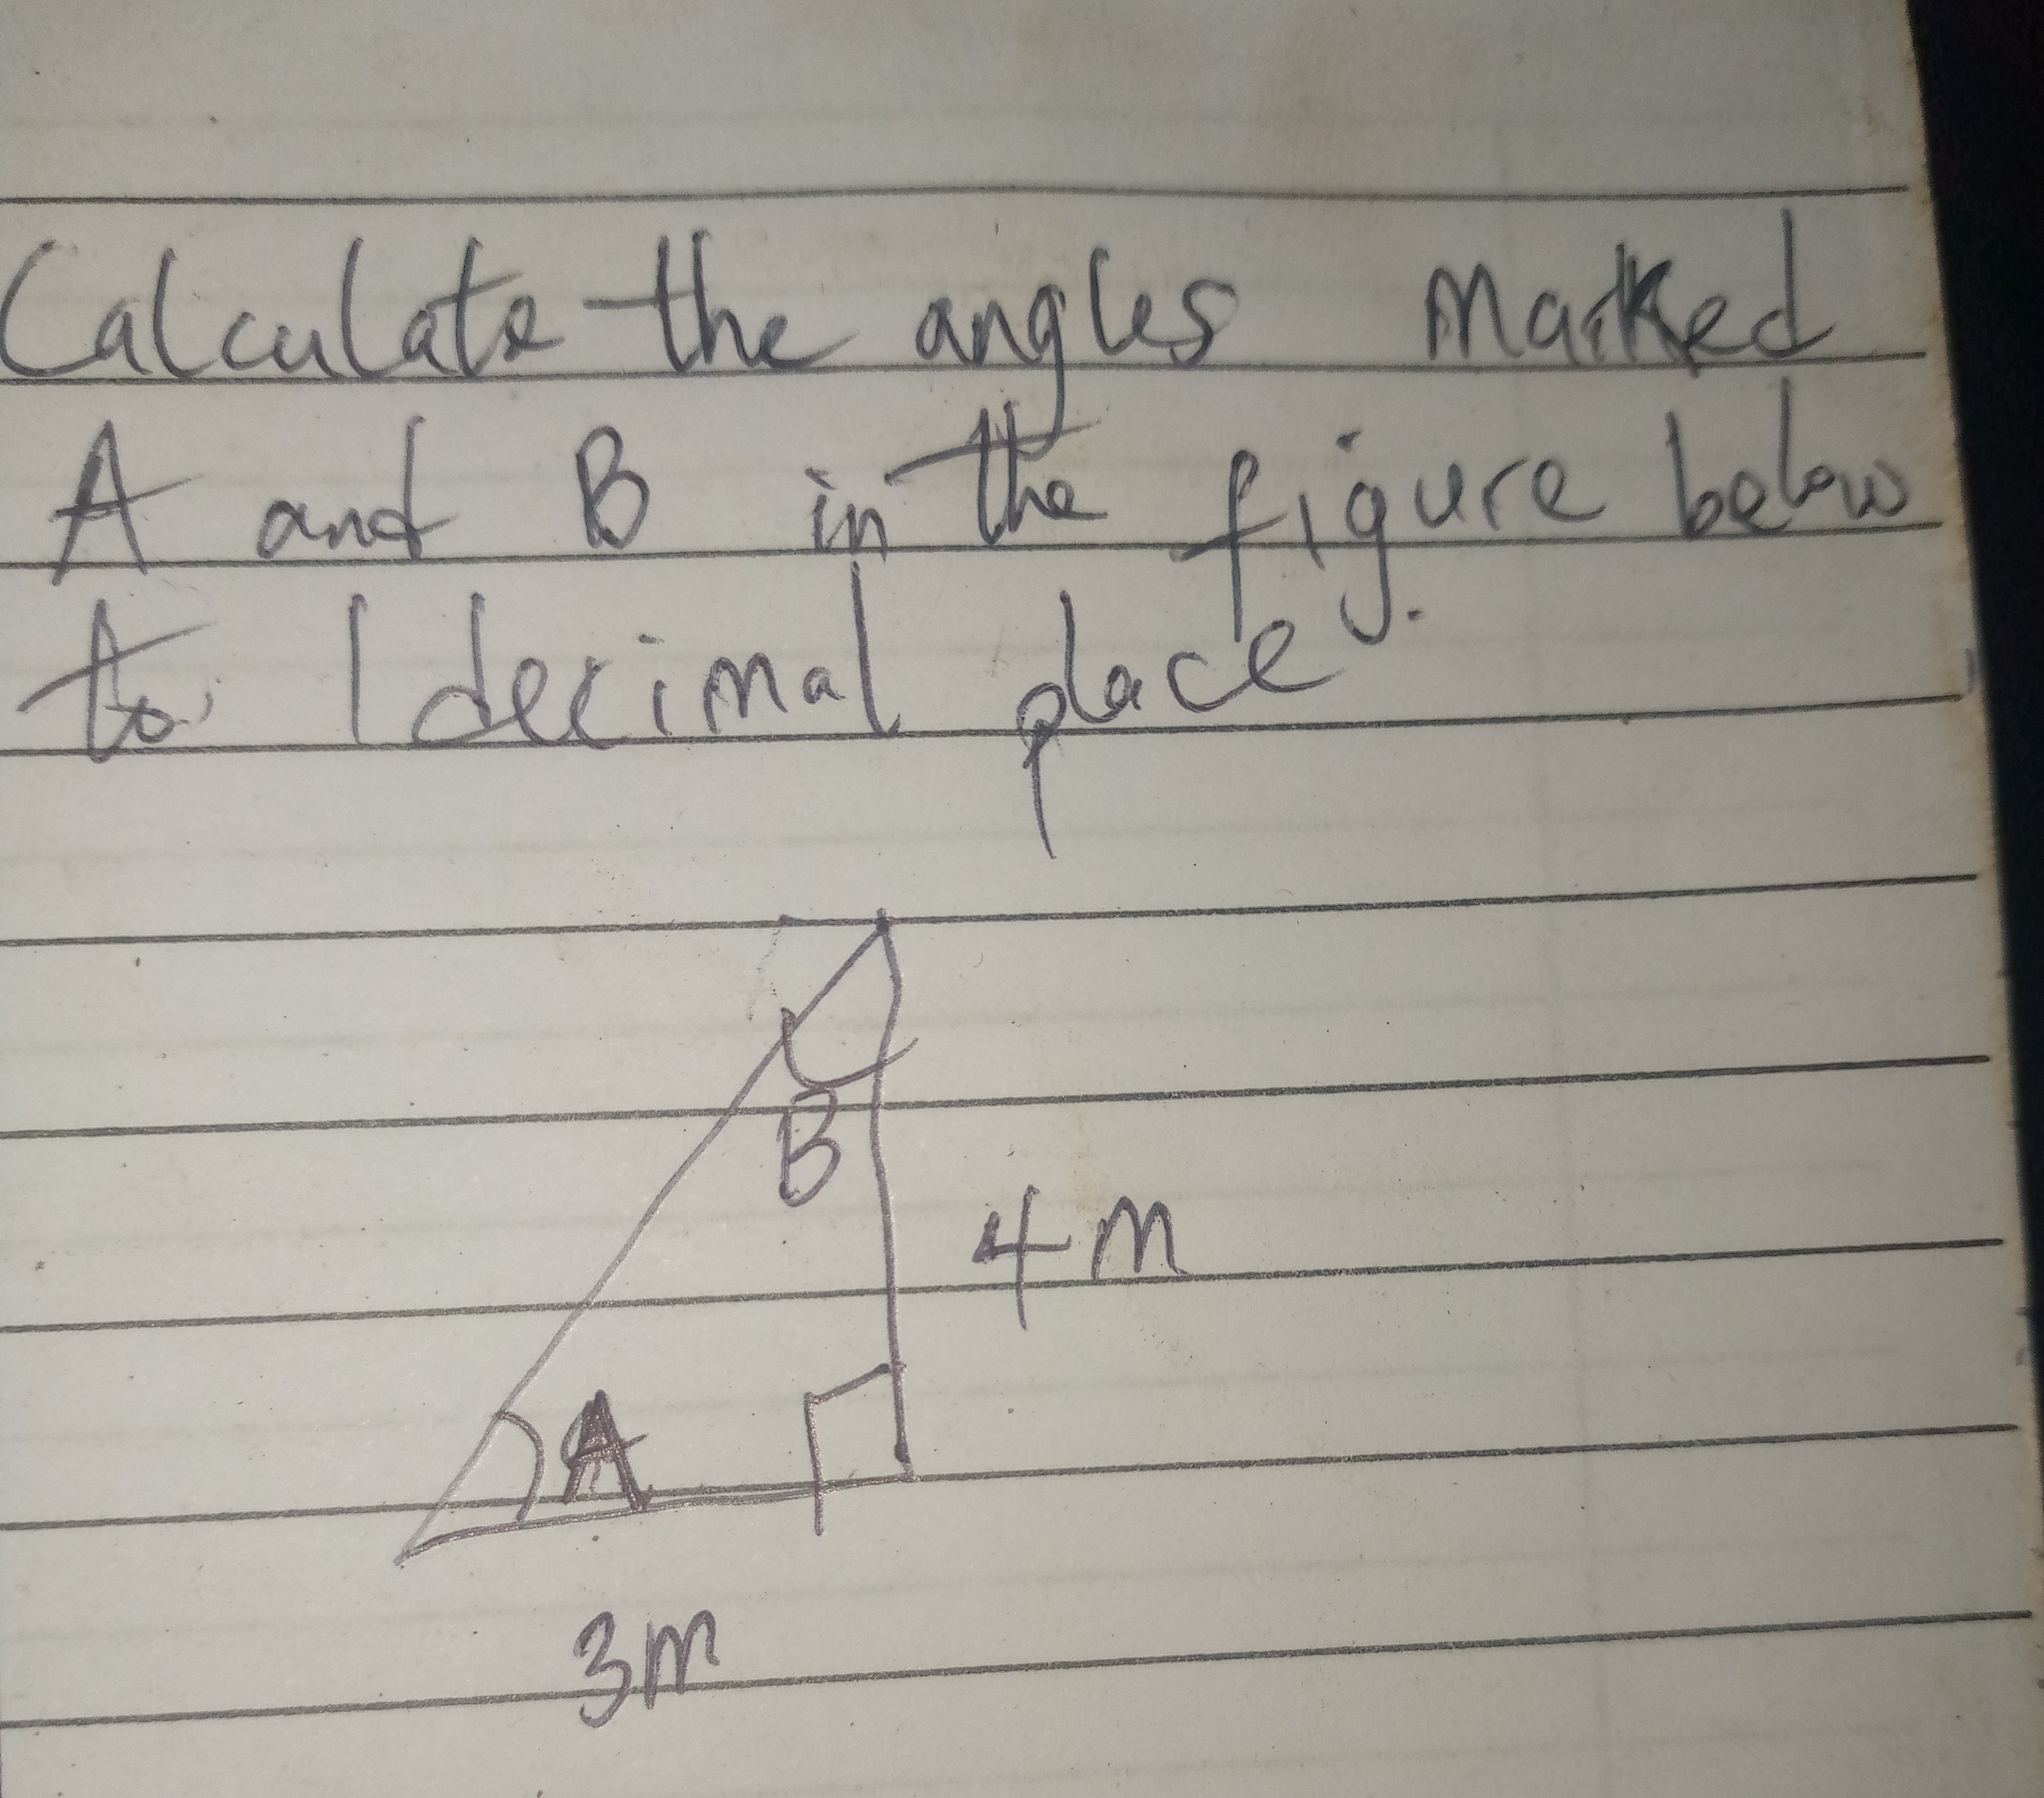 Calculate the angles marked
A and B in the figure below
to 1 decimal place
B
4m
A
3m